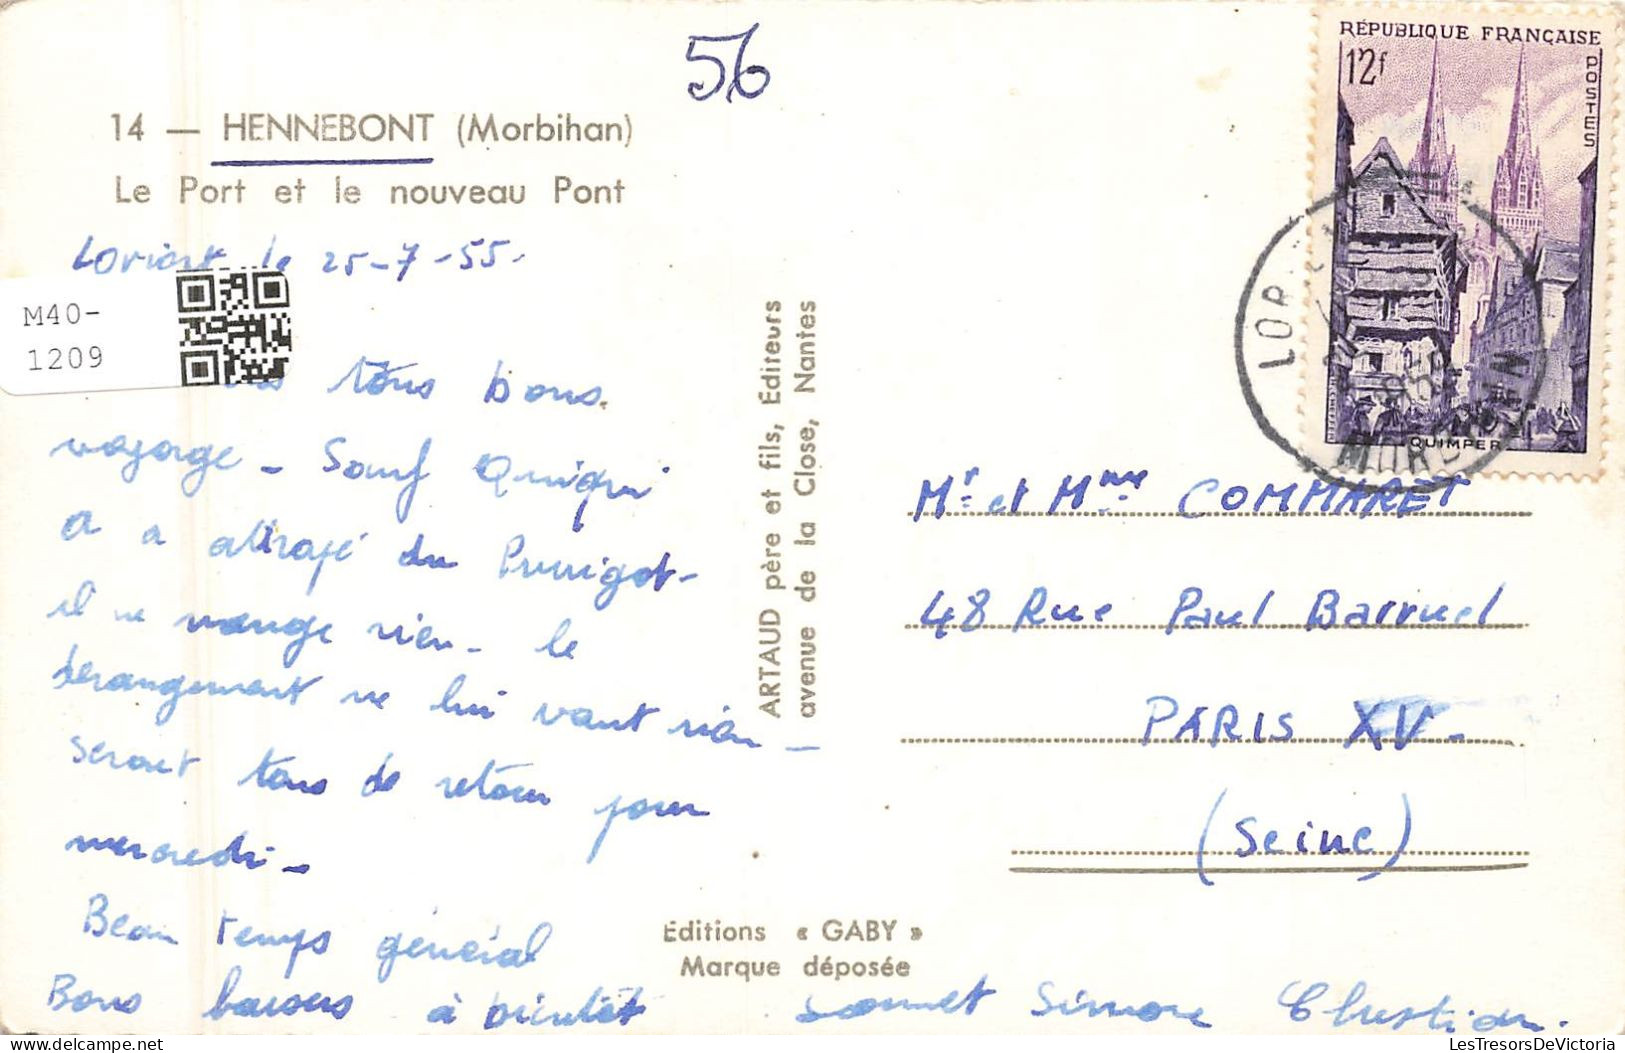 56
14 — HENNEBONT (Morbihan)
Le Port et le nouveau Pont
Loriant le 25-7-55.
M40-
1209
tous bons.
voyage - Sauf Quiqui
a
il ne mange rien - le
derangement ne lui vaut rien -
seront tous de retour pour
mercredi -
Beau temps général
Bons baisers à bientôt Simone Christian.
ARTAUD père et fils, Editeurs
avenue de la Close, Nantes
Editions « GABY »
Marque déposée
RÉPUBLIQUE FRANÇAISE
12f
POSTES
QUIMPER
Mr et Mme COMMARET
48 Rue Paul Barruel
PARIS XV -
(Seine)
LesTresorsDeVictoria